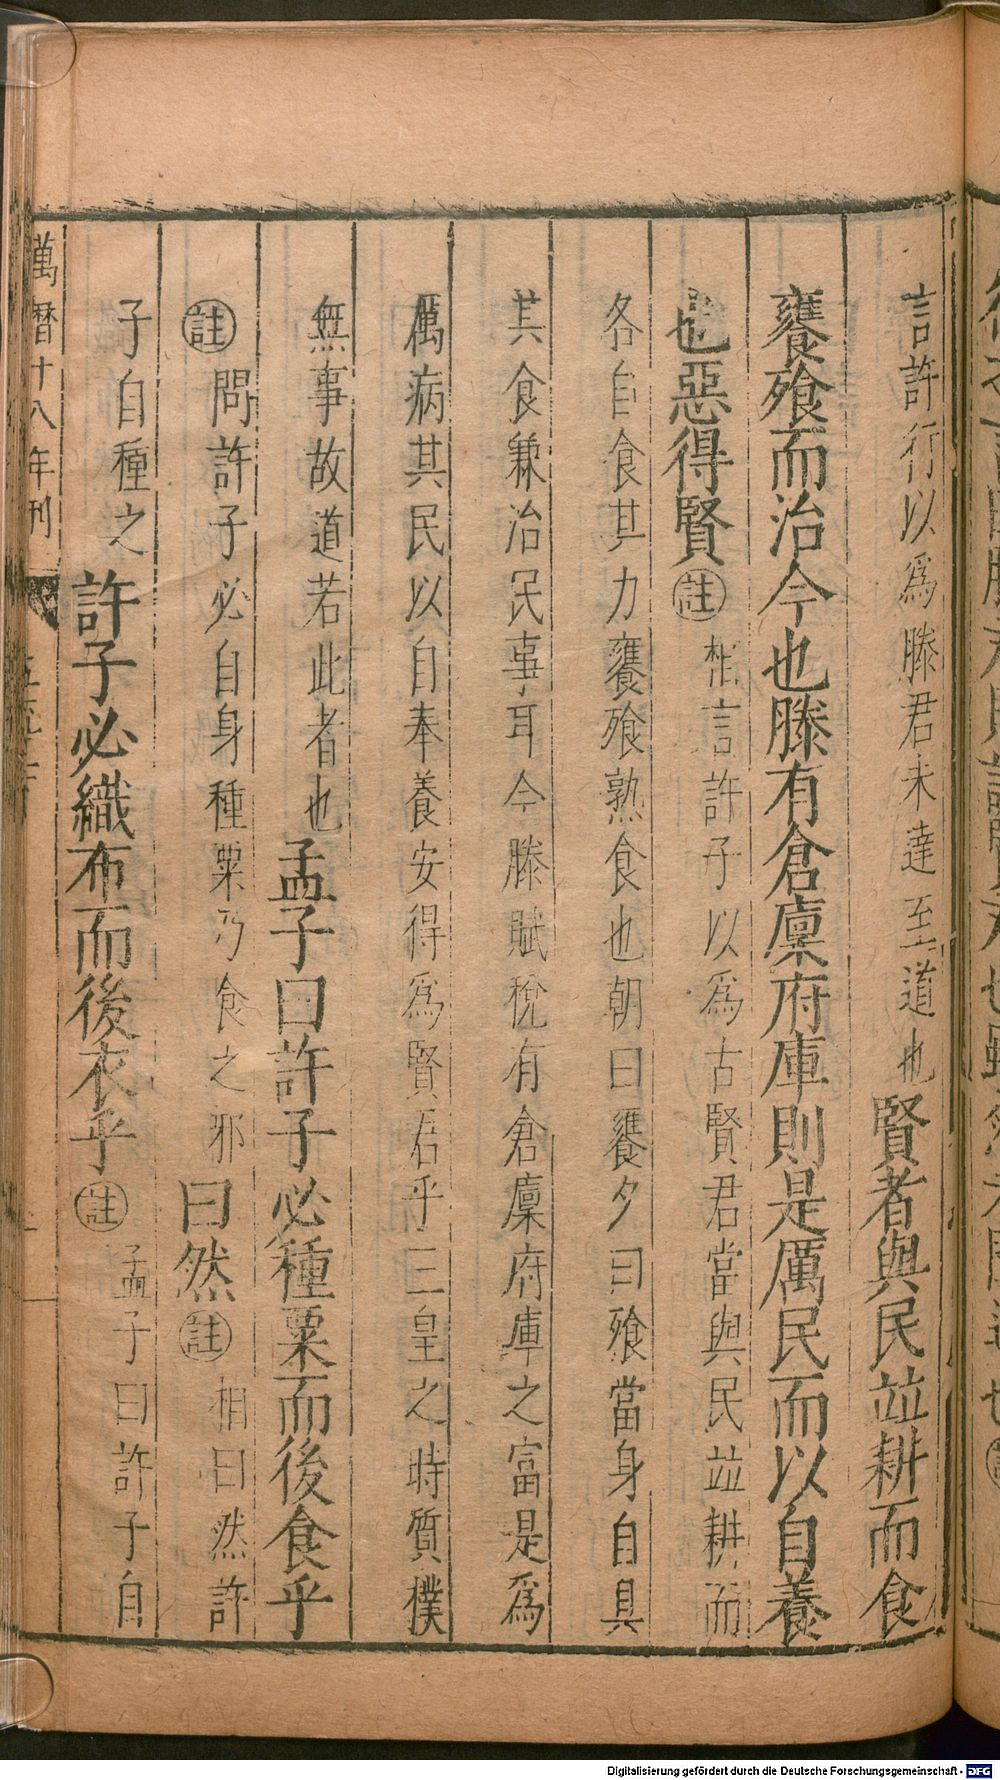 言許行以爲滕君未達至道也賢者與民竝耕而食
饔飱而治今也滕有倉廩府庫則是厲民而以自養
也惡得賢註相言許子以爲古賢君當與民竝耕而
各自食其力饔飱熟食也朝曰饔夕曰飱當身自具
其食兼治民事耳今滕賦稅有倉廩府庫之富是爲
厲病其民以自奉養安得爲賢君乎三皇之時質樸
無事故道若此者也孟子曰許子必種粟而後食乎
註問許子必自身種粟乃食之邪曰然註相曰然許
子自種之許子必織布而後衣乎註孟子曰許子自
萬曆十八年刊
Digitalisierung gefördert durch die Deutsche Forschungsgemeinschaft - DFG